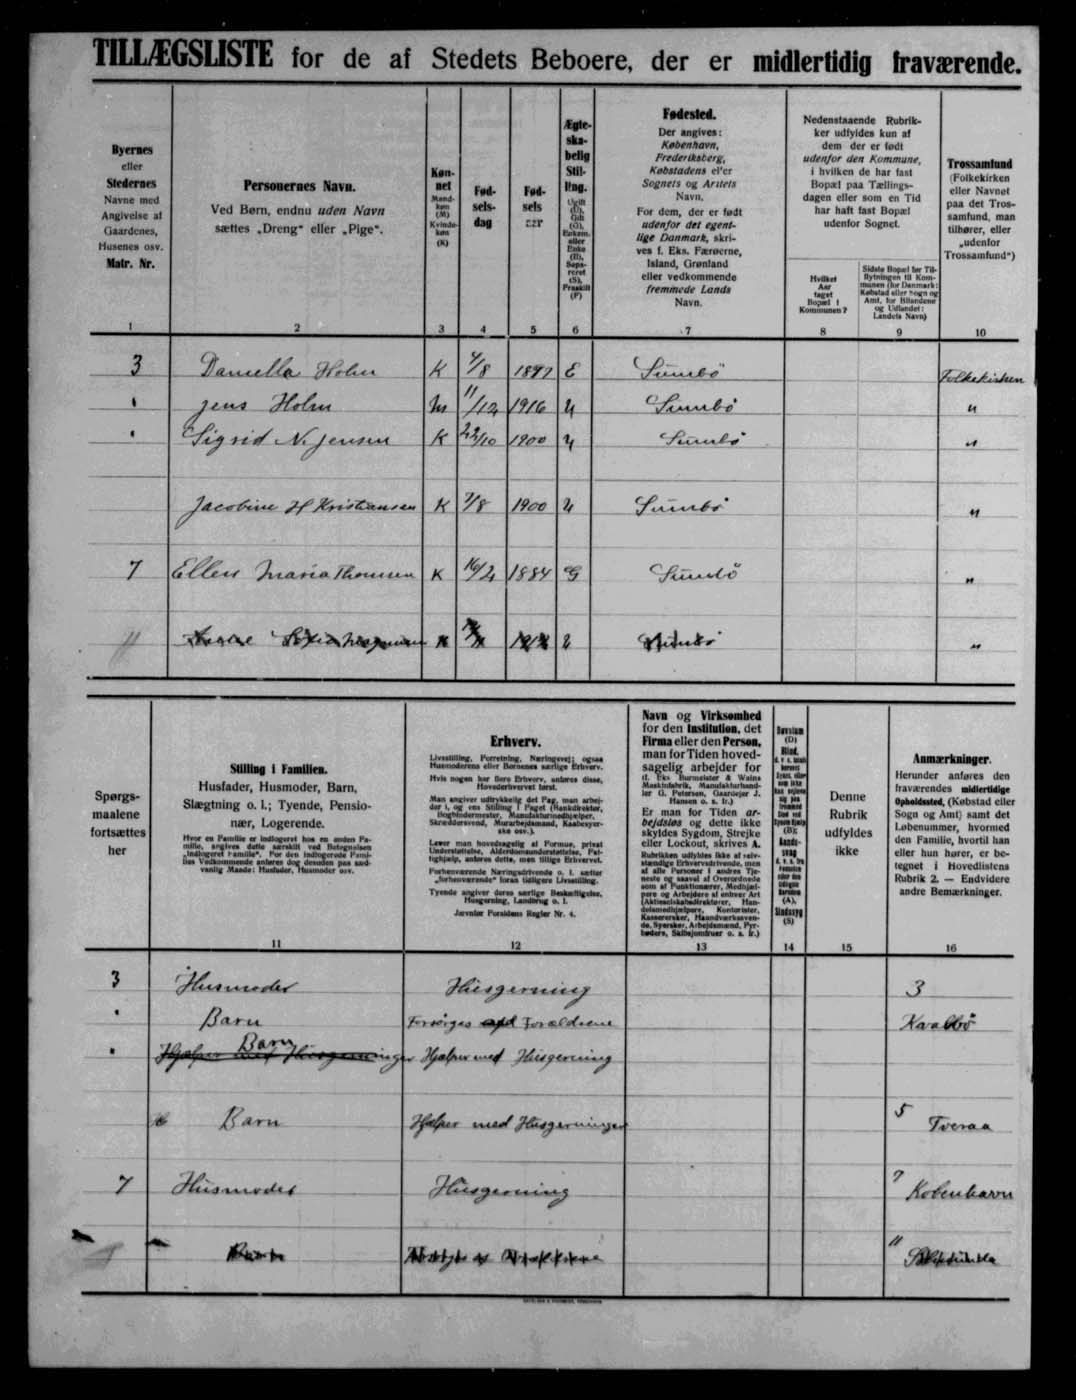 TILLÆGSLISTE for de af Stedets Beboere, der er midlertidig fraværende.
Byernes
eller
Stedernes
Navne med
Angivelse af
Gaardenes,
Husenes osv.
Matr. Nr.
1
Personernes Navn.
Ved Børn, endnu uden Navn
sættes „Dreng“ eller „Pige“.
2
Køn-
net
Mand-
køn
(M)
Kvinde-
køn
(K)
3
Fød-
sels-
dag
4
Fød-
sels
aar
5
Ægte-
ska-
belig
Stil-
ling.
Ugift
(U),
Gift
(G),
Enkem.
eller
Enke
(E),
Sepa-
reret
(S),
Fraskilt
(F)
6
Fødested.
Der angives:
København,
Frederiksberg,
Købstadens eller
Sognets og Amtets
Navn.
For dem, der er født
udenfor det egent-
lige Danmark, skri-
ves f. Eks. Færøerne,
Island, Grønland
eller vedkommende
fremmede Lands
Navn.
7
Nedenstaaende Rubrik-
ker udfyldes kun af
dem der er født
udenfor den Kommune,
i hvilken de har fast
Bopæl paa Tællings-
dagen eller som en Tid
har haft fast Bopæl
udenfor Sognet.
Hvilket
Aar
taget
Bopæl i
Kommunen?
8
Sidste Bopæl før Til-
flytningen til Kom-
munen (for Danmark:
Købstad eller Sogn og
Amt, for Bilandene
og Udlandet:
Landets Navn)
9
Trossamfund
(Folkekirken
eller Navnet
paa det Tros-
samfund, man
tilhører, eller
„udenfor
Trossamfund“)
10
3 Daniella Holm K 4/8 1897 E Sumbö Folkekirken
" Jens Holm M 11/12 1916 U Sumbö "
" Sigrid N. Jensen K 22/10 1900 U Sumbö "
Jacobine H Kristiansen K 7/8 1900 U Sumbö "
7 Ellen Maria Thomsen K 16/2 1884 G Sumbö "
11 K U Sumbö "
Spørgs-
maalene
fortsættes
her
Stilling i Familien.
Husfader, Husmoder, Barn,
Slægtning o. l.; Tyende, Pensio-
nær, Logerende.
Hvor en Familie er indlogeret hos en anden Fa-
milie, angives dette særskilt ved Betegnelsen
„Indlogeret Familie“. For den indlogerede Fami-
lies Vedkommende anføres dog desuden paa sæd-
vanlig Maade: Husfader, Husmoder osv.
11
Erhverv.
Livsstilling, Forretning, Næringsvej; ogsaa
Husmoderens eller Børnenes særlige Erhverv.
Hvis nogen har flere Erhverv, anføres disse,
Hovederhvervet først.
Man angiver udtrykkelig det Fag, man arbej-
der i, og ens Stilling i Faget (Bankdirektør,
Bogbindermester, Manufakturmedhjælper,
Skræddersvend, Murarbejdsmand, Kaabesyer-
ske osv.).
Lever man hovedsagelig af Formue, privat
Understøttelse, Alderdomsunderstøttelse, Fat-
tighjælp, anføres dette, men tillige Erhvervet.
Forhenværende Næringsdrivende o. l. sætter
„forhenværende“ foran tidligere Livsstilling.
Tyende angiver deres særlige Beskæftigelse,
Husgerning, Landbrug o. l.
Jævnfør Forsidens Regler Nr. 4.
12
Navn og Virksomhed
for den Institution, det
Firma eller den Person,
man for Tiden hoved-
sagelig arbejder for
(f. Eks Burmeister & Wains
Maskinfabrik, Manufakturhand-
ler G. Petersen, Gaardejer J.
Hansen o. s. fr.)
Er man for Tiden ar-
bejdsløs og dette ikke
skyldes Sygdom, Strejke
eller Lockout, skrives A.
Rubrikken udfyldes ikke af selv-
stændige Erhvervsdrivende, men
af alle Personer i andres Tje-
neste og saavel af Overordnede
som af Funktionærer, Medhjæl-
pere og Arbejdere af enhver Art
(Aktieselskabsdirektører, Han-
delsmedhjælpere, Kontorister,
Kasserersker, Haandværkssven-
de, Syersker, Arbejdsmænd, Fyr-
bødere, Skibsjomfruer o. s. fr.)
13
Døvstum
(D)
Blind,
(B);
Aands-
svag
(A),
Sindssyg
(S)
14
Denne
Rubrik
udfyldes
ikke
15
Anmærkninger.
Herunder anføres den
fraværendes midlertidige
Opholdssted, (Købstad eller
Sogn og Amt) samt det
Løbenummer, hvormed
den Familie, hvortil han
eller hun hører, er be-
tegnet i Hovedlistens
Rubrik 2. — Endvidere
andre Bemærkninger.
16
3 Husmoder Husgerning 3
" Barn Forsørges af Forældrene Kvalbö
Barn
" Hjælper med Husgerninger Hjælper med Husgerning
Barn Hjælper med Husgerninger 5 Tveraa
7 Husmoder Husgerning 7 København
Barn 11